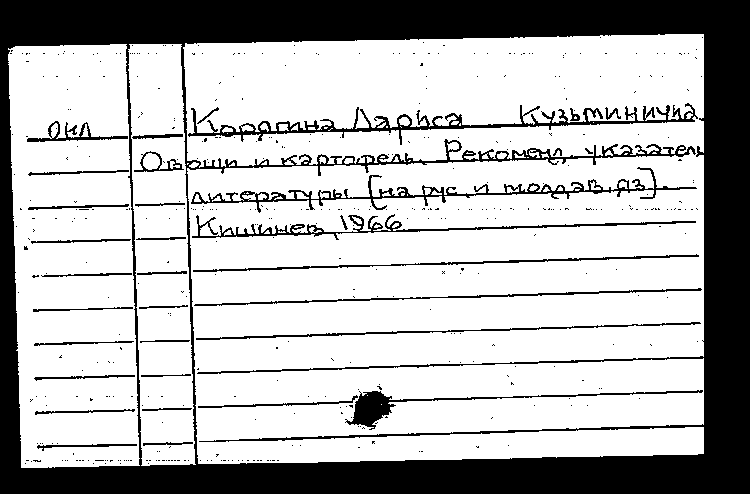 окл Корягина, Лариса Кузьминична.
Овощи и картофель. Рекоменд. указатель
литературы [на рус. и молдав. яз].
Кишинев, 1966